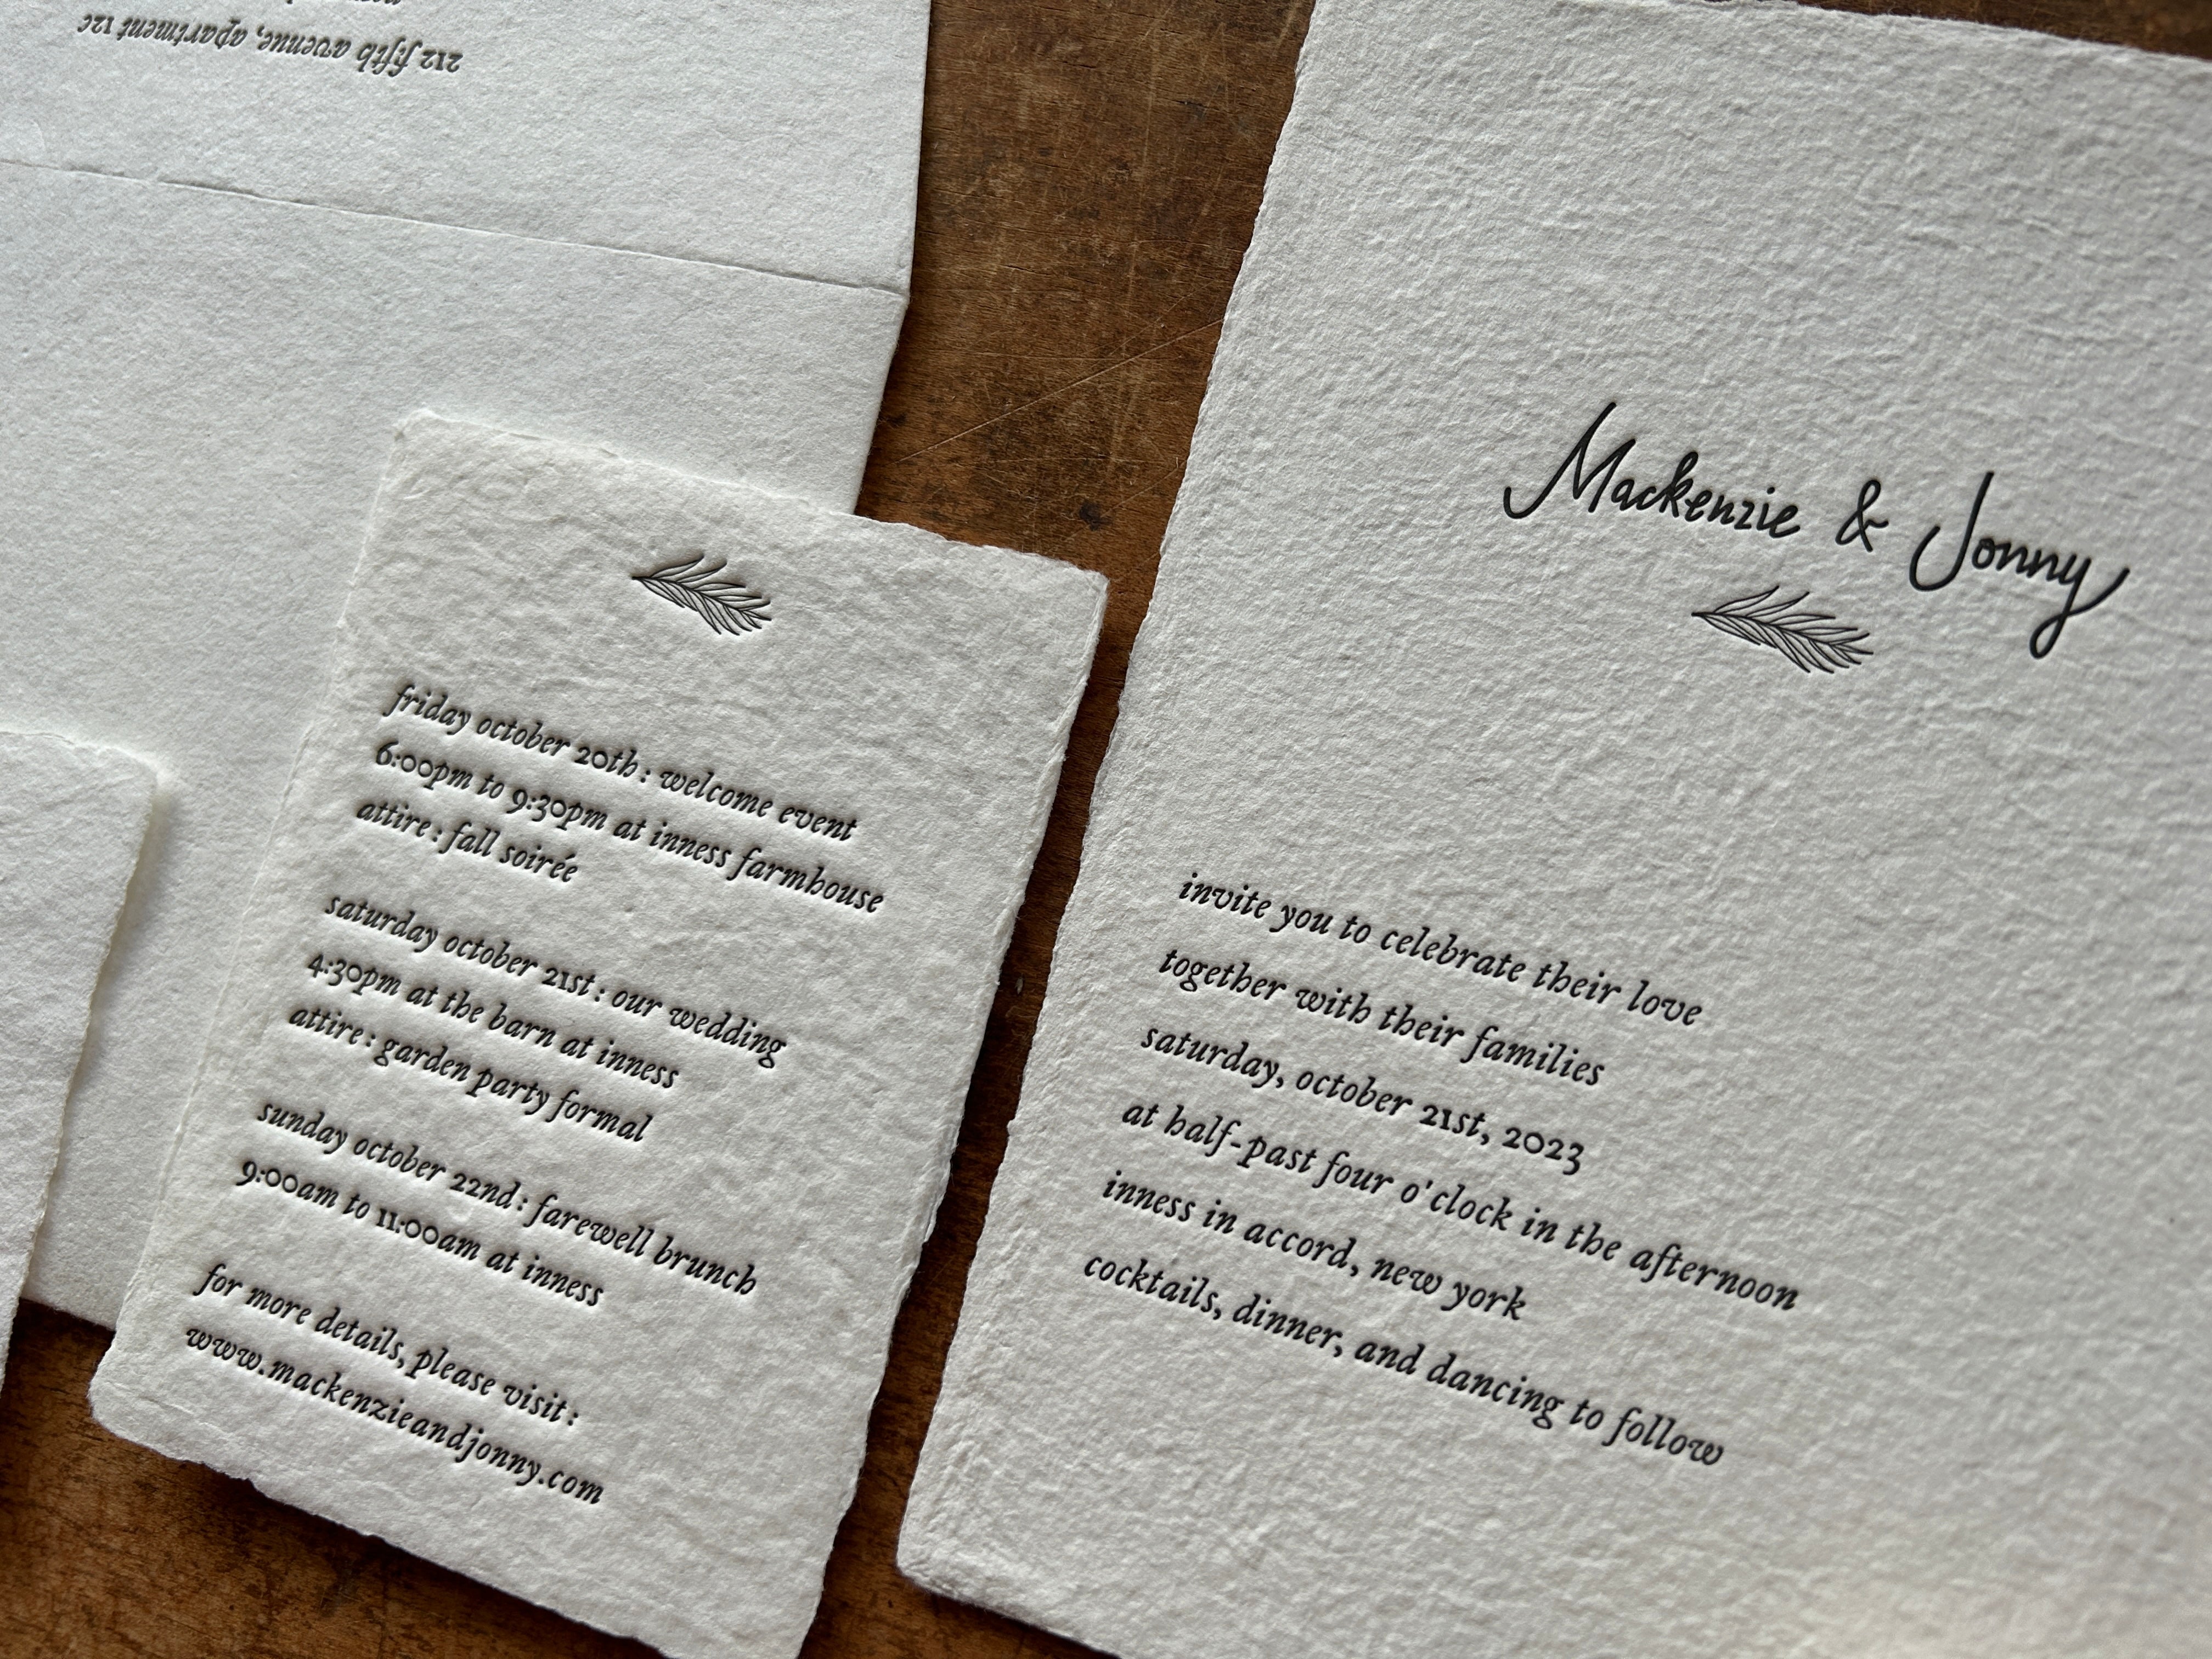 212 fifth avenue, apartment 12c
friday october 20th : welcome event
6:00pm to 9:30pm at inness farmhouse
attire : fall soirée
saturday october 21st : our wedding
4:30pm at the barn at inness
attire : garden party formal
sunday october 22nd : farewell brunch
9:00am to 11:00am at inness
for more details, please visit :
www.mackenzieandjonny.com
Mackenzie & Jonny
invite you to celebrate their love
together with their families
saturday, october 21st, 2023
at half-past four o'clock in the afternoon
inness in accord, new york
cocktails, dinner, and dancing to follow